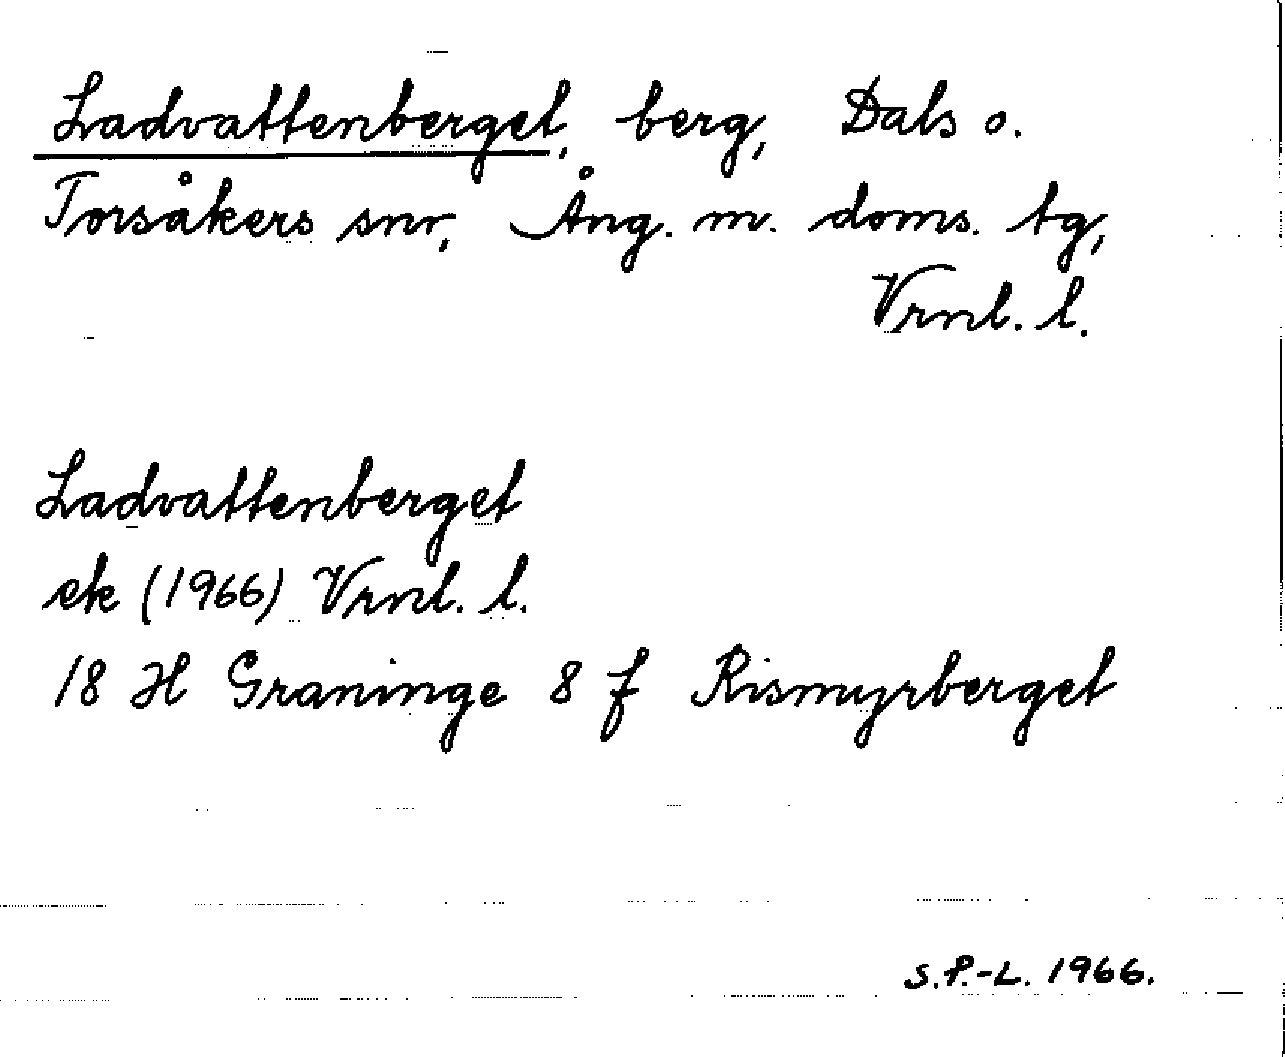 Ladvattenberget, berg, Dals o.
Torsåkers snr, Ång. m. doms. tg,
Vrnl. l.
Ladvattenberget
ek (1966) Vrnl. l.
18 H Graninge 8 f Rismyrberget
S.P.-L. 1966.